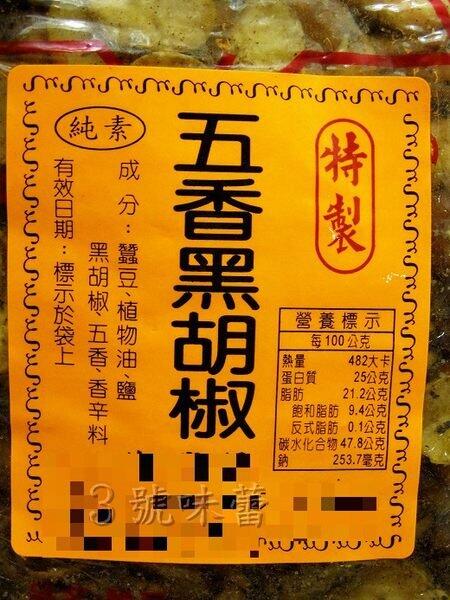 特製
五香黑胡椒
純素
成分：蠶豆、植物油、鹽、
黑胡椒、五香、香辛料
有效日期：標示於袋上
營養標示
每100公克
熱量 482大卡
蛋白質 25公克
脂肪 21.2公克
飽和脂肪 9.4公克
反式脂肪 0.1公克
碳水化合物 47.8公克
鈉 253.7毫克
3號味蕾